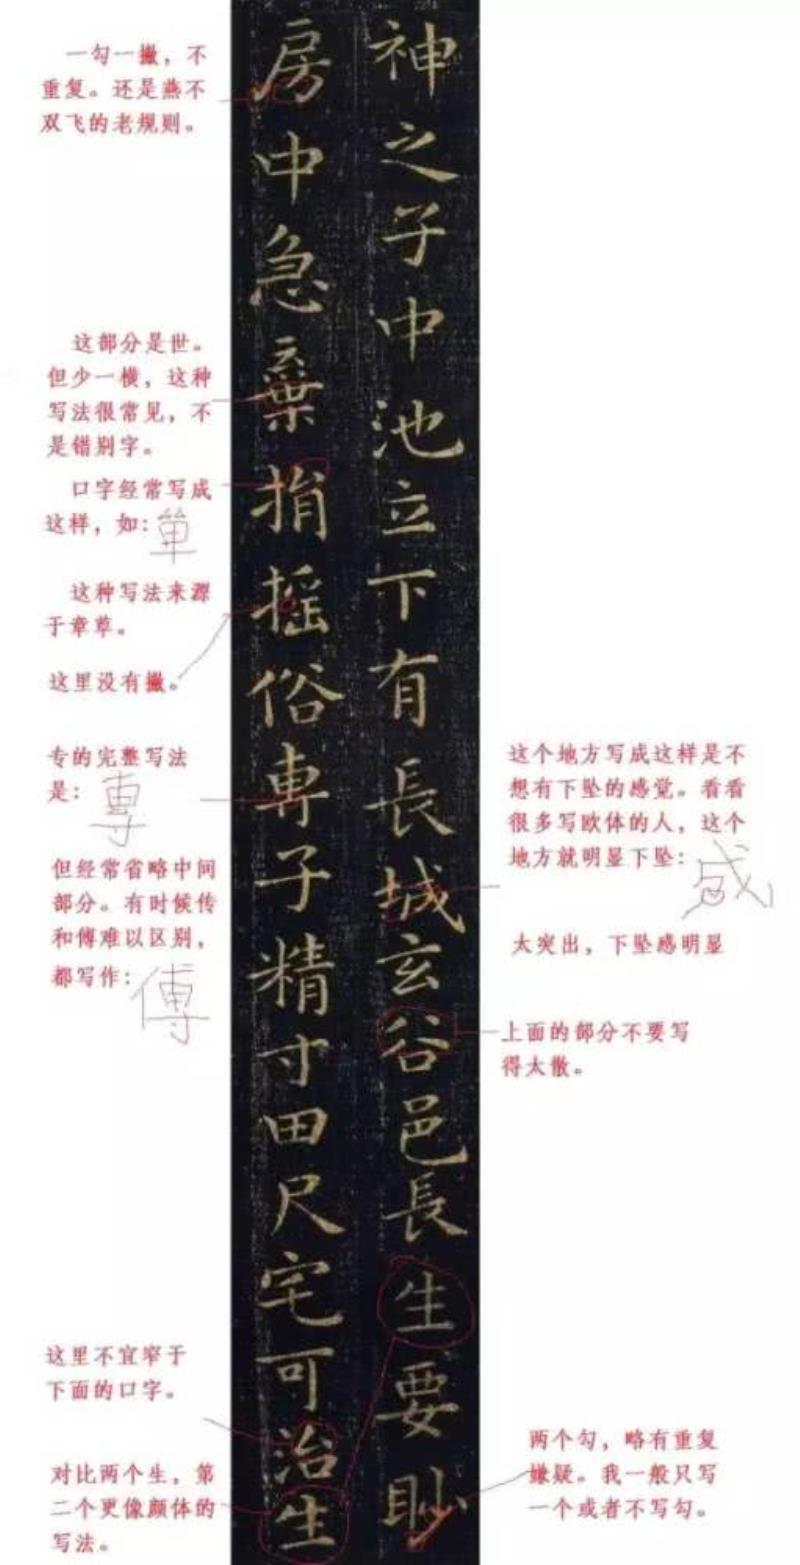 神之子中池立下有長城玄谷邑長生要眇
房中急棄捐搖俗専子精寸田尺宅可治生
一勾一撇，不
重复。还是燕不
双飞的老规则。
这部分是世。
但少一横，这种
写法很常见，不
是错别字。
口字经常写成
这样，如：
这种写法来源
于章草。
这里没有撇。
专的完整写法
是：專
但经常省略中间
部分。有时候传
和傅难以区别，
都写作：傅
这里不宜窄于
下面的口字。
对比两个生，第
二个更像颜体的
写法。
这个地方写成这样是不
想有下坠的感觉。看看
很多写欧体的人，这个
地方就明显下坠：成
太突出，下坠感明显
上面的部分不要写
得太散。
两个勾，略有重复
嫌疑。我一般只写
一个或者不写勾。